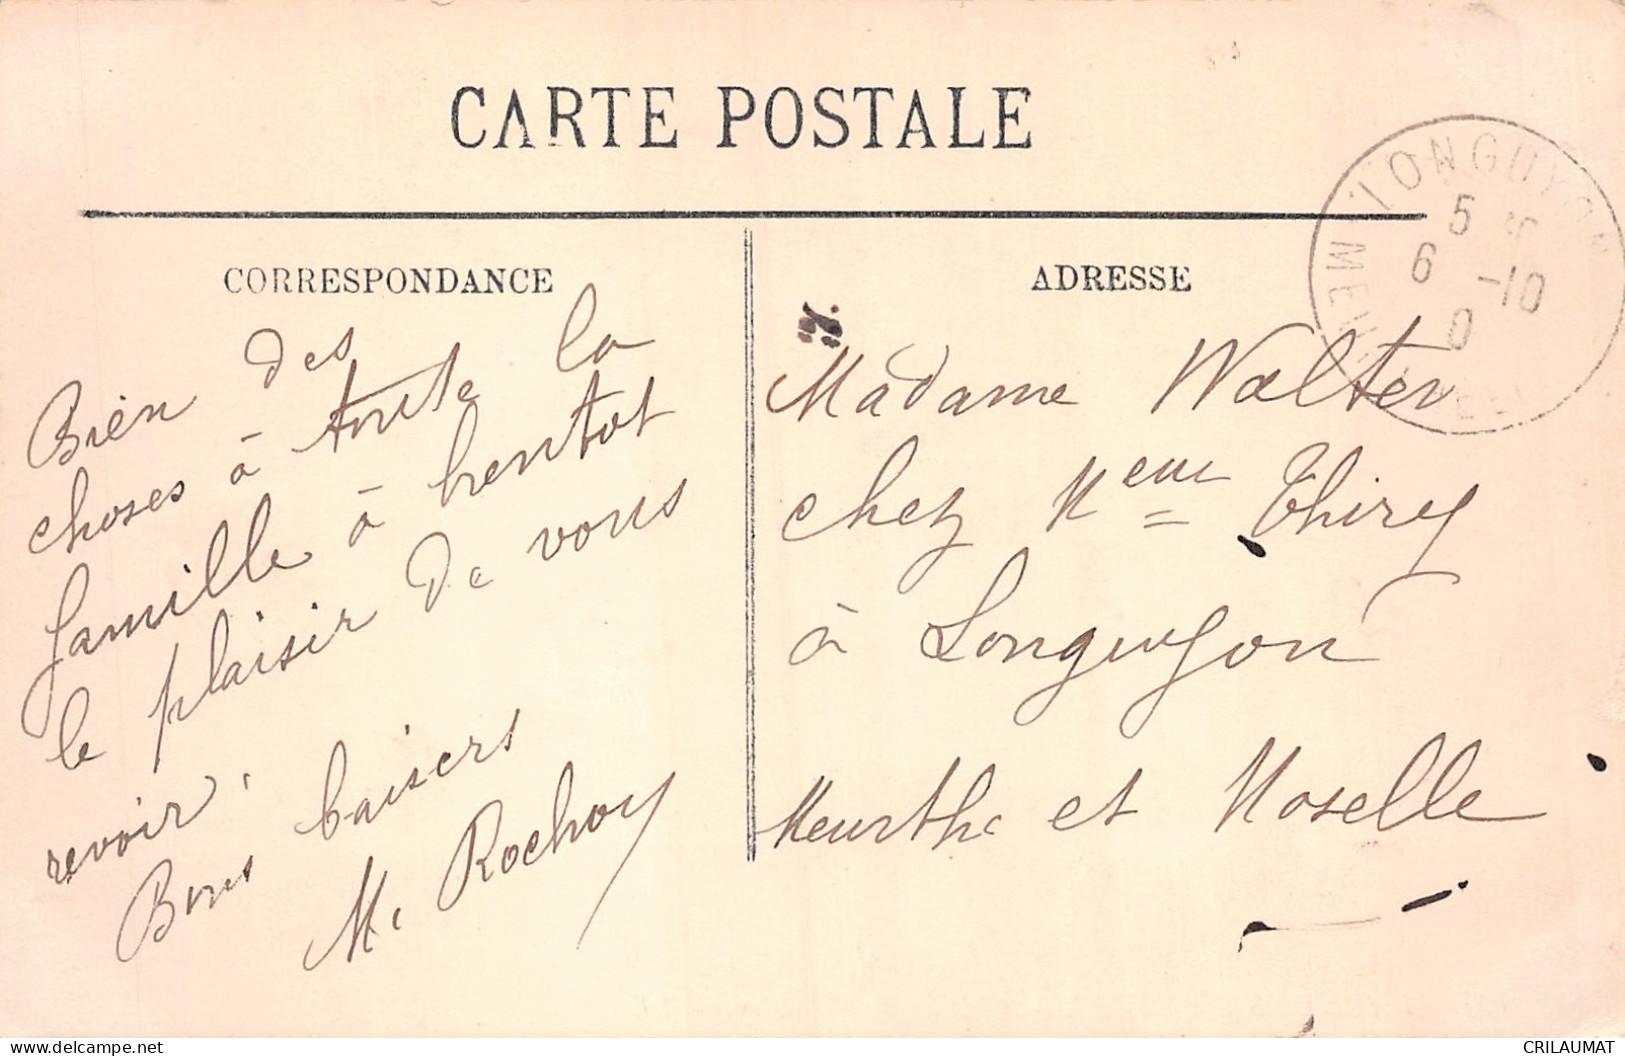 CARTE POSTALE
CORRESPONDANCE
Bien des
choses à toute la
famille à bientot
le plaisir de vous
revoir.
Bons baisers
M. Rochoy
ADRESSE
Madame Walter
chez Meme Thirey
à Longuyon
Meurthe et Moselle
LONGUYON
5
6 -10
0
MEU
CRILAUMAT